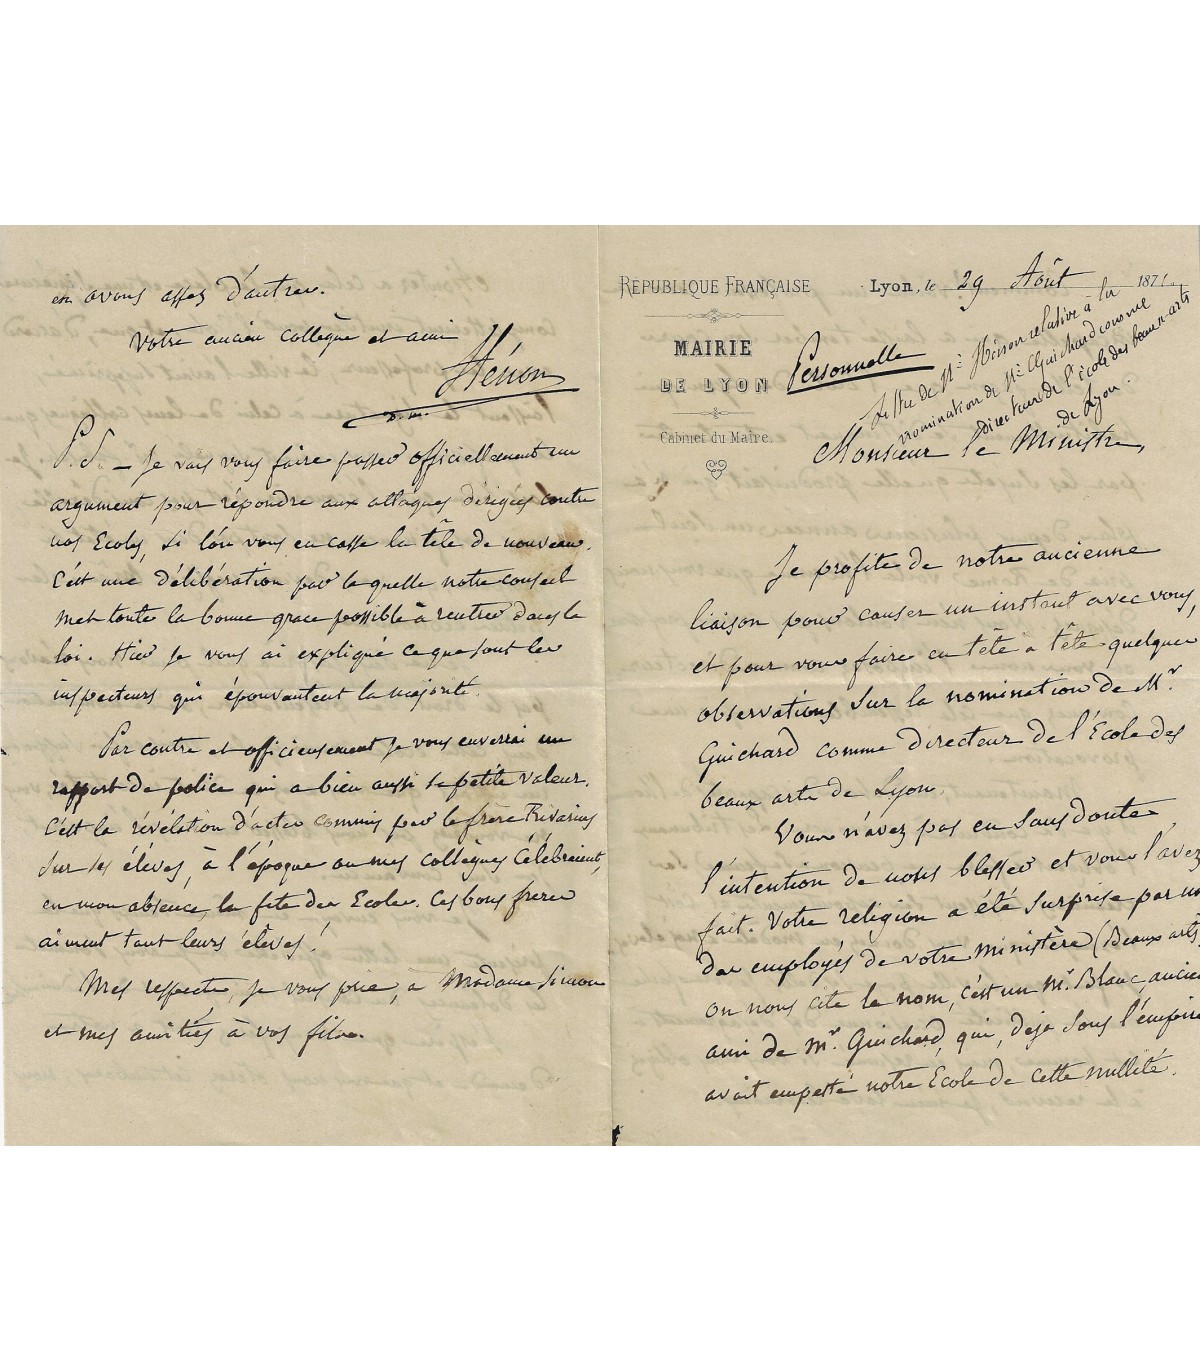 RÉPUBLIQUE FRANÇAISE
MAIRIE
DE LYON
Cabinet du Maire.
Lyon, le 29 Août 1871.
Personnelle
Lettre de Mr Hénon relative à la
nomination de Mr Guichard comme
directeur de l'école des beaux arts
de Lyon.
Monsieur le Ministre,
Je profite de notre ancienne
liaison pour causer un instant avec vous,
et pour vous faire en tête à tête quelques
observations sur la nomination de Mr.
Guichard comme directeur de l'École des
beaux arts de Lyon.
Vous n'avez pas eu sans doute
l'intention de nous blesser et vous l'avez
fait. Votre religion a été surprise par un
des employés de votre ministère (Beaux arts)
on nous cite le nom, c'est un Mr. Blanc, ancien
ami de Mr. Guichard, qui, déja sous l'empire
avait empesté notre École de cette nullité.
en avons assez d'autres.
Votre ancien collègue et ami
Hénon
d. m.
P. S. — Je vais vous faire passer officiellement un
argument pour répondre aux attaques dirigées contre
nos Ecoles, si l'on vous en casse la tête de nouveau.
C'est une délibération par la quelle notre conseil
met toute la bonne grace possible à rentrer dans la
loi. Hier je vous ai expliqué ce que sont les
inspecteurs qui épouvantent la majorité.
Par contre et officieusement je vous enverrai un
rapport de police qui a bien aussi sa petite valeur.
C'est la révélation d'actes commis par le frère
sur ses élèves, à l'époque ou mes collègues célébraient,
en mon absence, la fête des Ecoles. Ces bons frères
aiment tant leurs élèves!
Mes respects, je vous prie, à Madame Simon
et mes amitiés à vos fils.